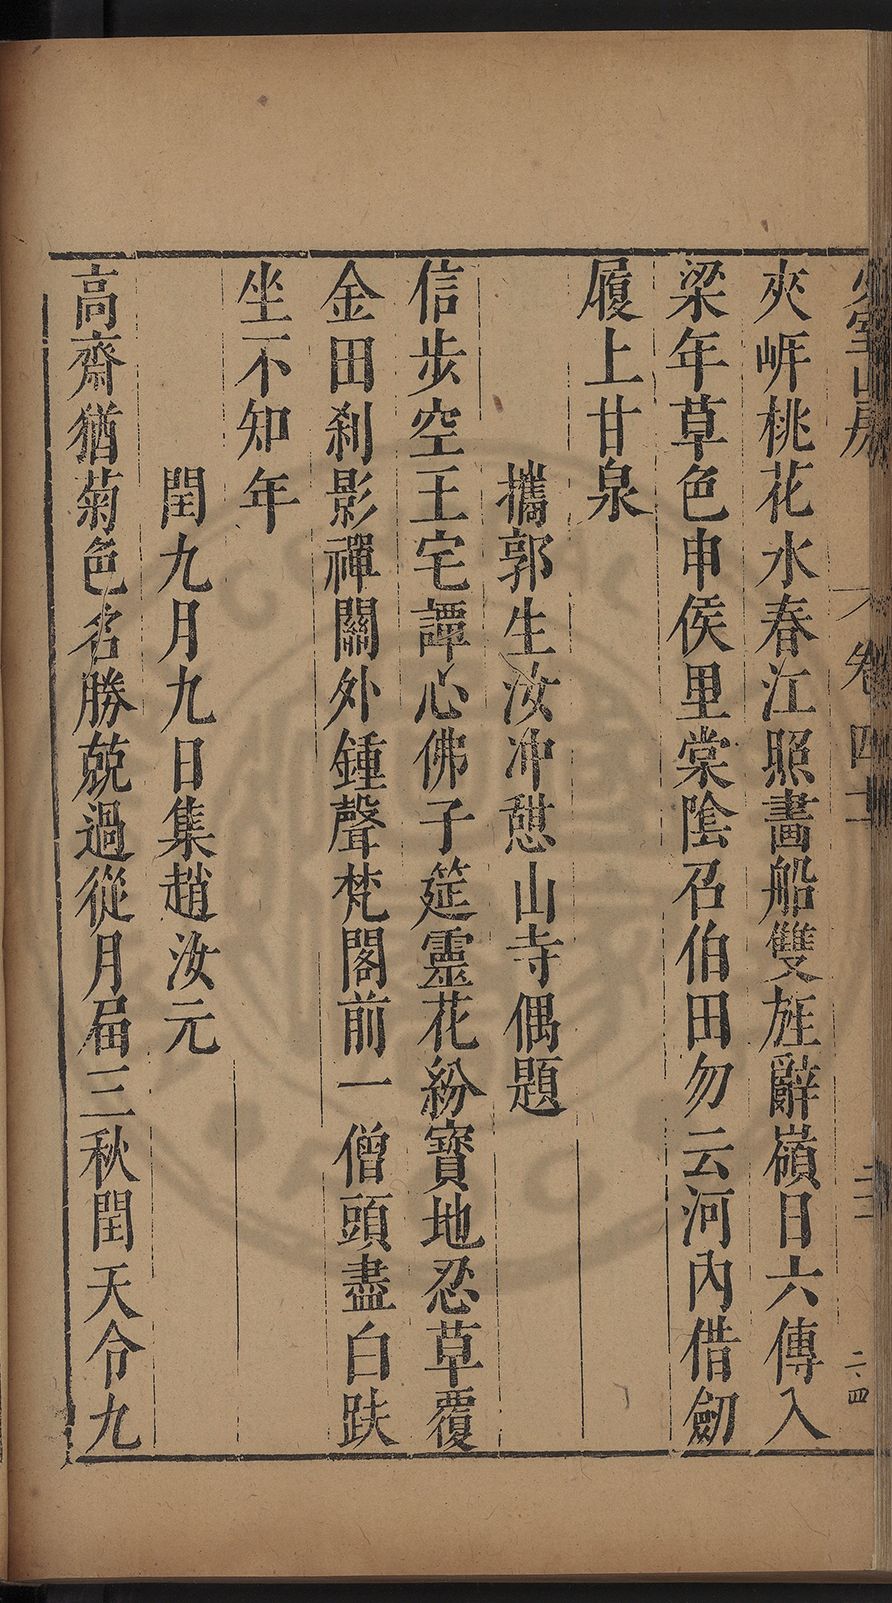 少室山房 卷四十 二十一 二、四
夾岸桃花水春江照畵船雙旌辭嶺日六傳入
梁年草色申侯里棠陰召伯田勿云河內借劒
履上甘泉
攜郭生汝冲憇山寺偶題
信步空王宅譚心佛子筵靈花紛寳地忍草覆
金田刹影禪關外鍾聲梵閣前一僧頭盡白趺
坐不知年
閏九月九日集趙汝元
高齋猶菊色名勝兢過從月届三秋閏天令九